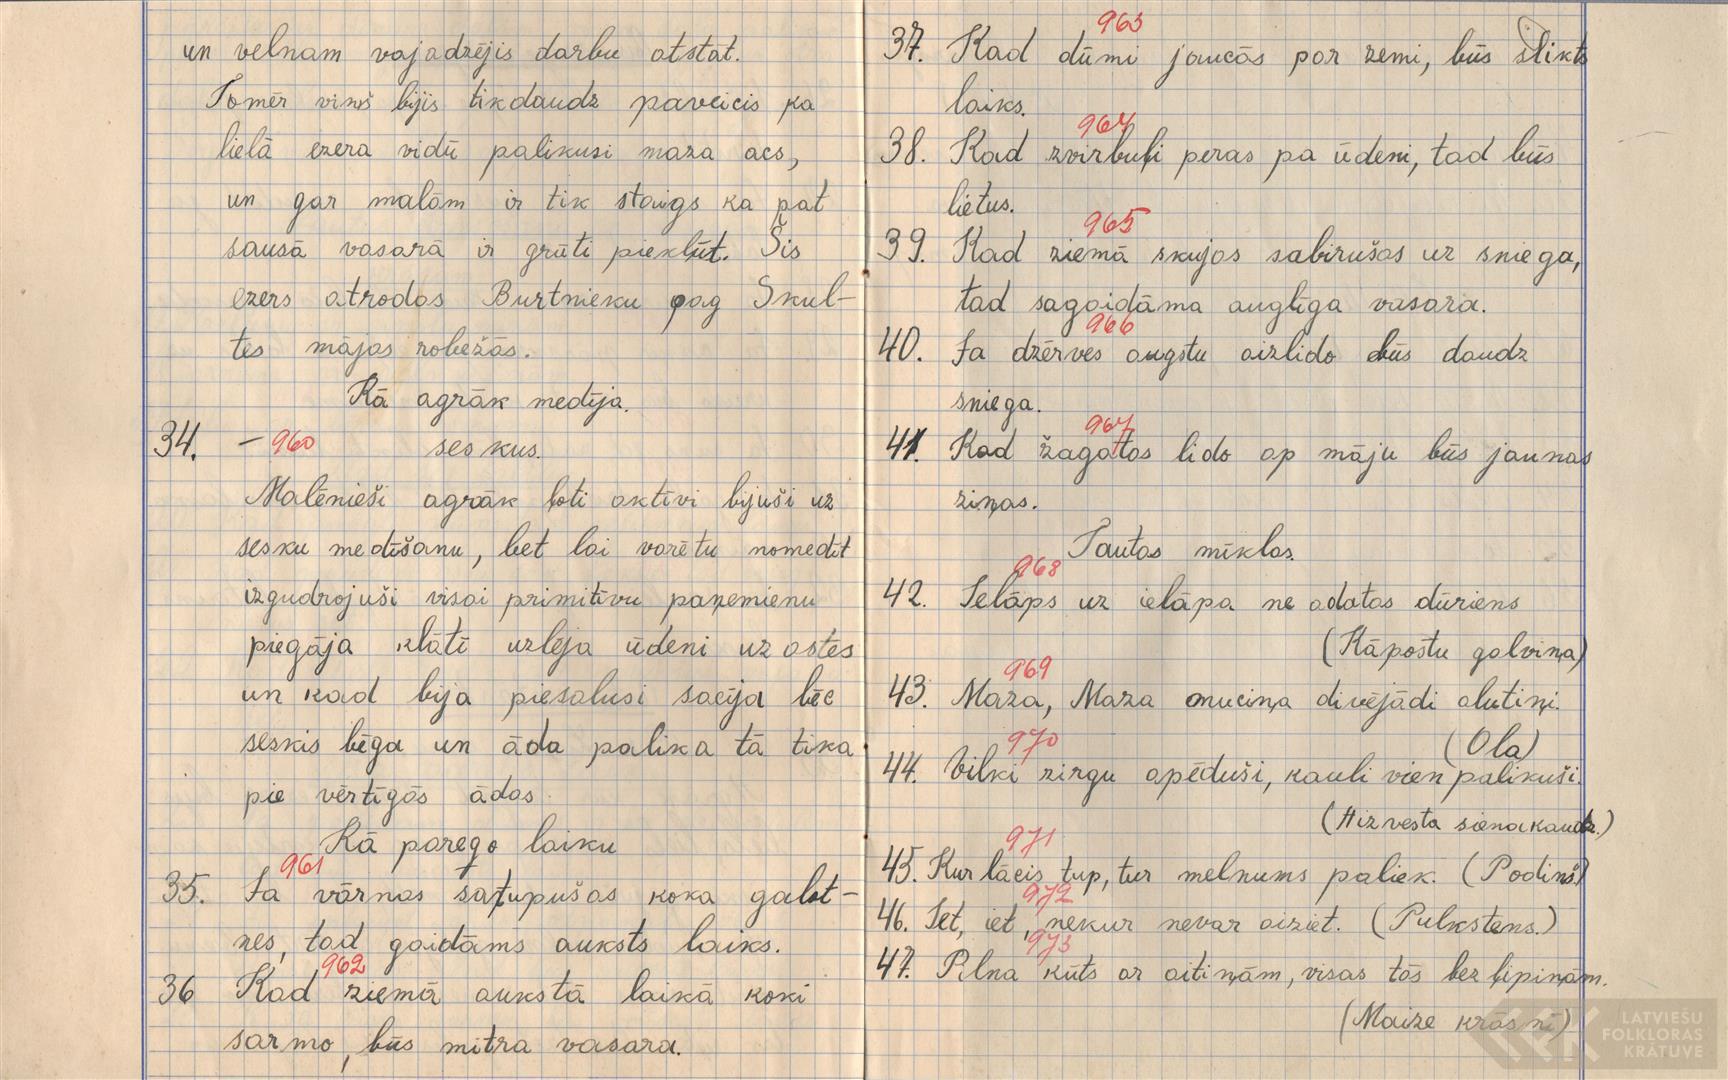 un velnam vajadzējis darbu atstat.
Tomēr viņš bijis tikdaudz paveicis ka
lielā ezera vidū palikusi maza acs,
un gar malām ir tik staigs ka pat
sausā vasarā ir grūti piekļūt. Šis
ezers atrodas Burtnieku pag Skul-
tes mājas robežās.
Kā agrāk medīja.
34. - 960 seskus.
Malēnieši agrāk ļoti aktīvi bijuši uz
sesku medīšanu, bet lai varētu nomedīt
izgudrojuši visai primitīvu paņemienu
piegāja klātī uzlēja ūdeni uz astes
un kad bija piesalusi sacīja bēc
seskis bēga un āda palika tā tika
pie vērtīgās ādas.
Kā parego laiku
961
35. Ja vārnas satupušas koka galot-
nes, tad gaidāms auksts laiks.
962
36 Kad ziemā aukstā laikā koki
sarmo, būs mitra vasara.
963
37. Kad dūmi jaucās par zemi, būs slikts
laiks.
964
38. Kad zvirbuļi peras pa ūdeni, tad būs
lietus.
965
39. Kad ziemā skujas sabirušas uz sniega,
tad sagaidāma auglīga vasara.
966
40. Ja dzērves augstu aizlido būs daudz
sniega.
967
41. Kad žagatas lido ap māju būs jaunas
ziņas.
Tautas mīklas.
968
42. Ielāps uz ielāpa ne adatas dūriens
(Kāpostu galviņa)
969
43. Maza, Maza muciņa divējādi alutiņi.
(Ola)
970
44. Vilki zirgu apēduši, kauli vien palikuši.
(Aizvesta sienakaudz.)
971
45. Kur lācis tup, tur melnums paliek. (Podiņš)
972
46. Iet, iet, nekur nevar aiziet. (Pulkstens.)
973
47. Pilna kūts ar aitiņām, visas tās bez ļipiņām.
(Maize krāsnī)
LATVIEŠU
FOLKLORAS
KRĀTUVE